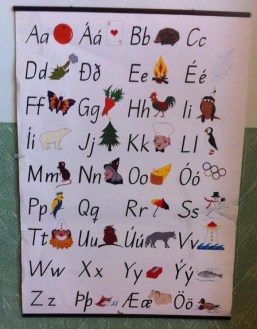 Aa Áá Bb Cc
Dd Ðð Ee Éé
Ff Gg Hh Ii
Íí Jj Kk Ll
Mm Nn Oo Óó
Pp Qq Rr Ss
Tt Uu Úú Vv
Ww Xx Yy Ýý
Zz Þþ Ææ Öö